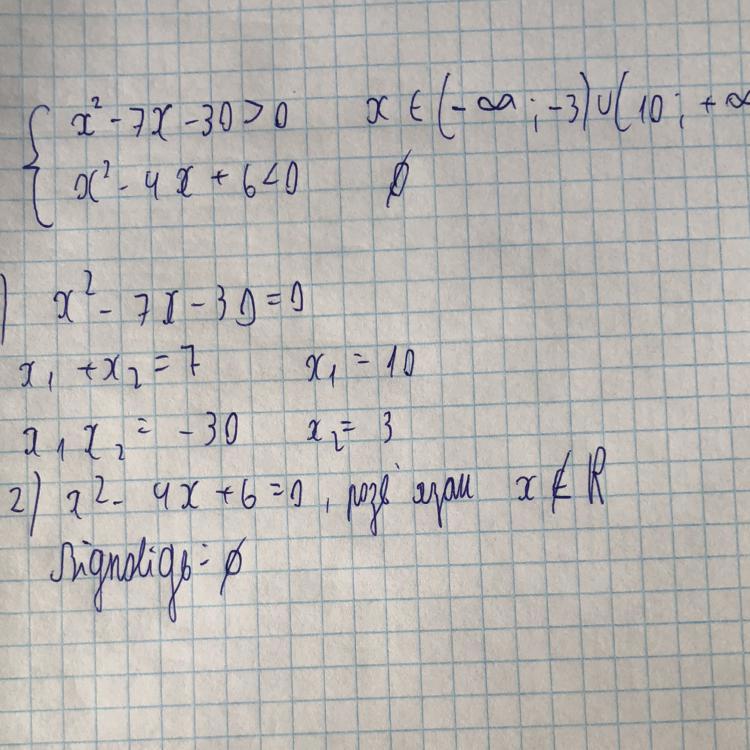 x² - 7x - 30 > 0 x ∈ (-∞; -3) ∪ (10; +∞
x² - 4x + 6 < 0 ∅
) x² - 7x - 30 = 0
x₁ + x₂ = 7 x₁ = 10
x₁ x₂ = -30 x₂ = 3
2) x² - 4x + 6 = 0, розв'язам x ∉ R
Відповідь: ∅